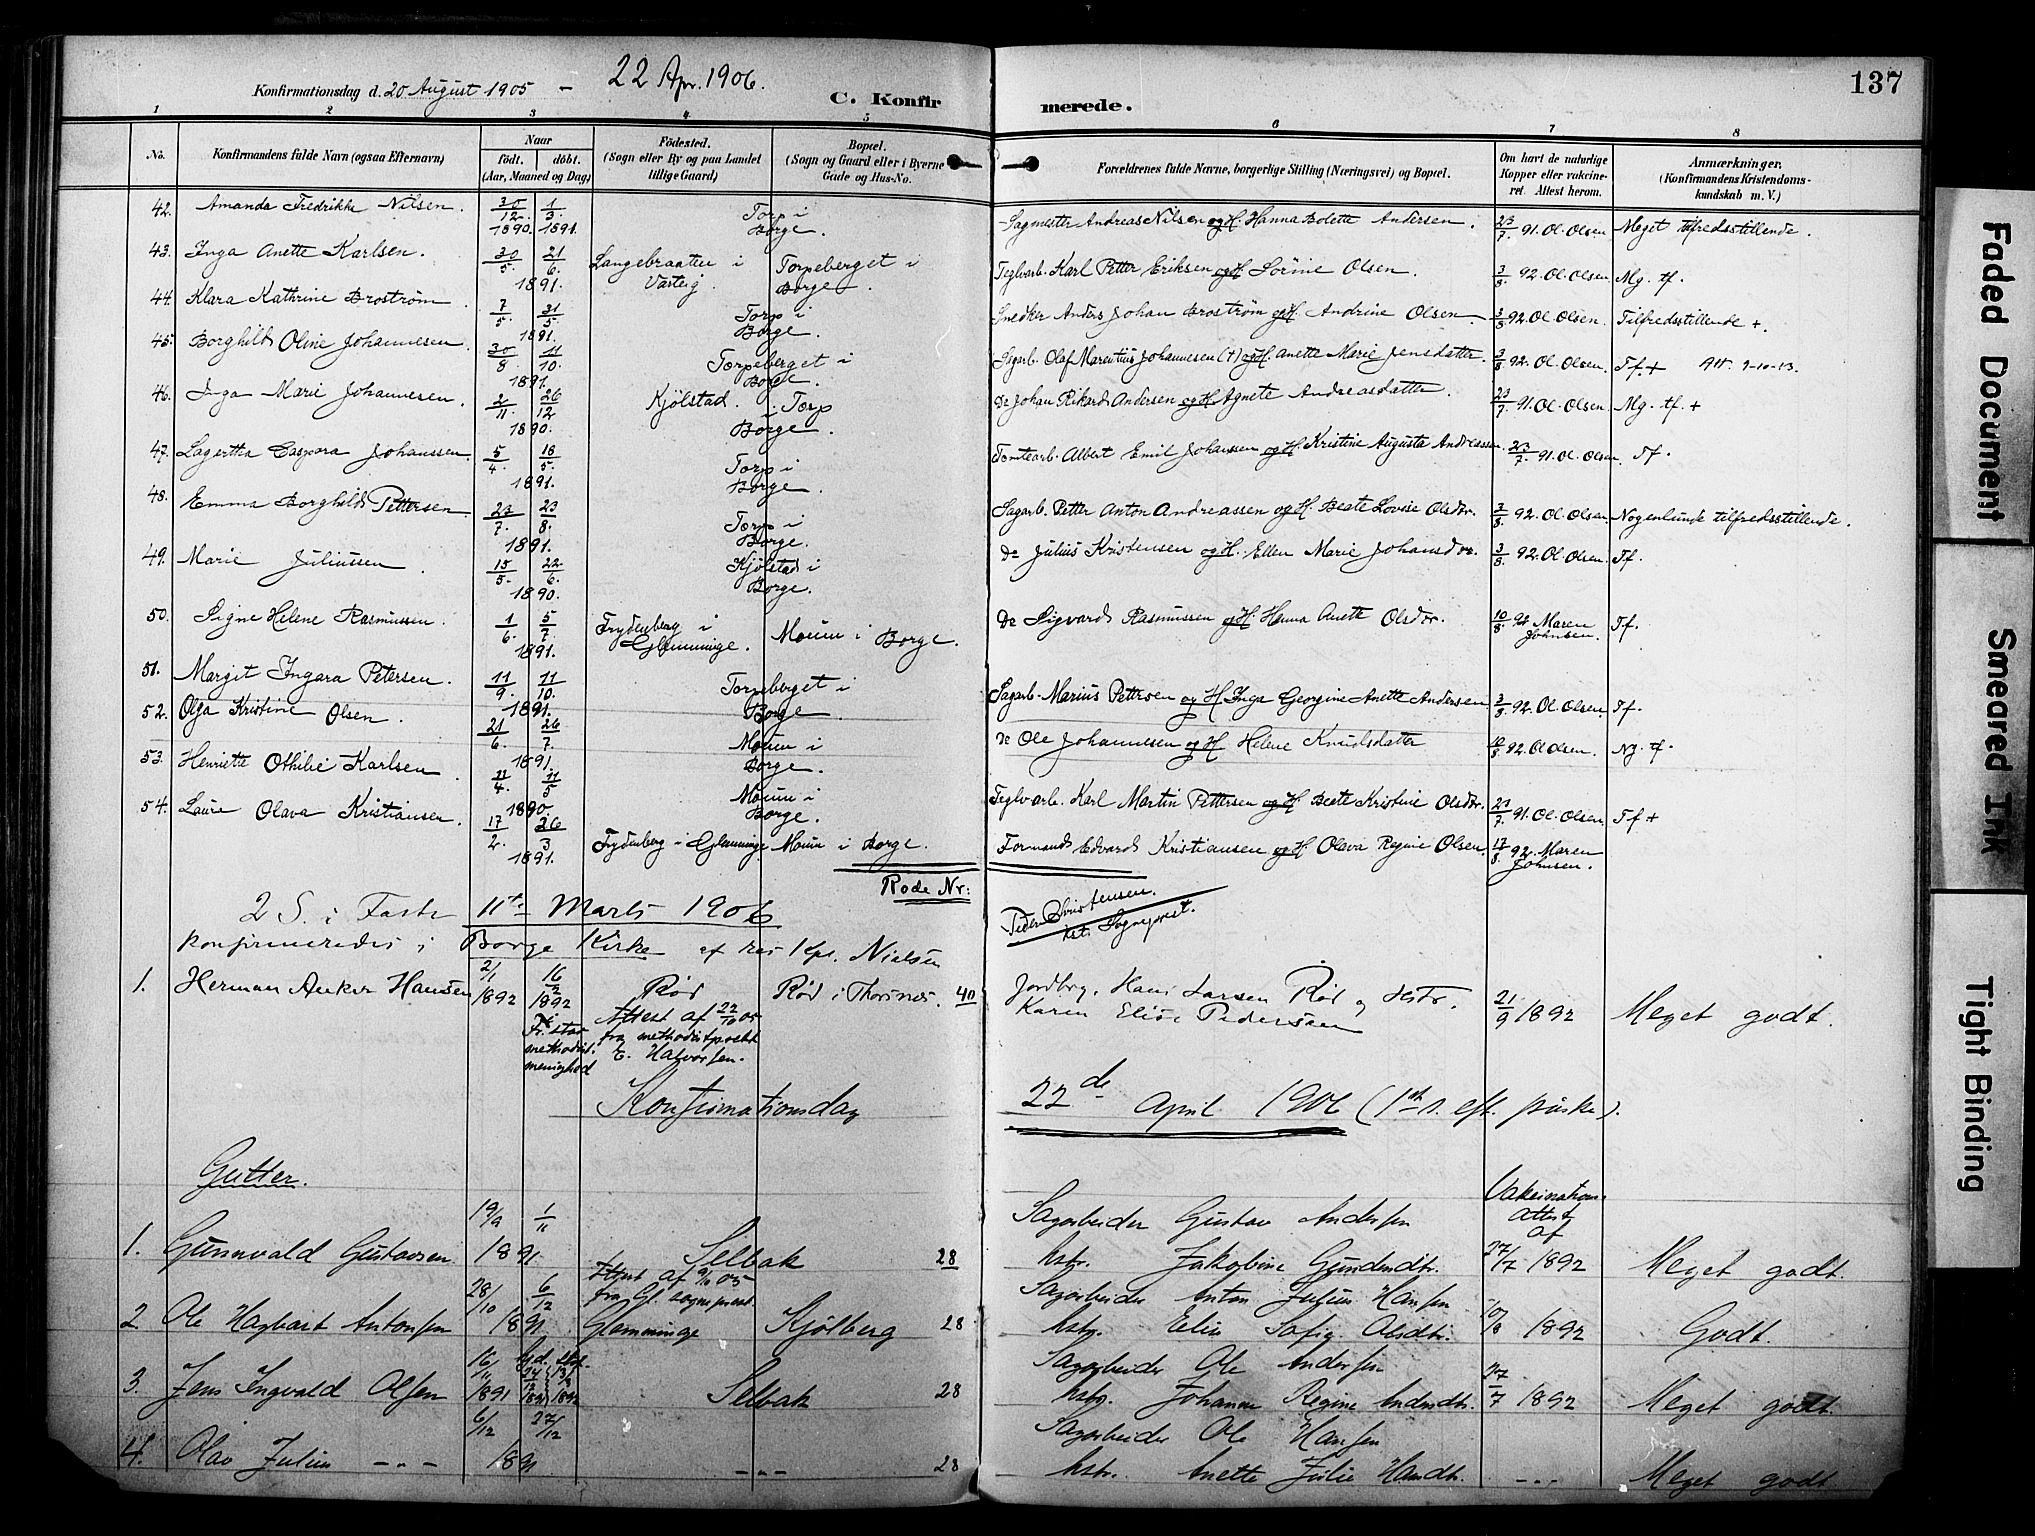 Konfirmationsdag d. 20 August 1905 – 22 Apr. 1906. C. Konfirmerede. 137
1 2 3 4 5 6 7 8
No. Konfirmandens fulde Navn (ogsaa Efternavn) Naar født. døbt. (Aar, Maaned og Dag) Fødested. (Sogn eller By og paa Landet tillige Gaard) Bopæl. (Sogn og Gaard eller i Byerne Gade og Hus-No. Forældrenes fulde Navne, borgerlige Stilling (Næringsvei) og Bopæl. Om havt de naturlige Kopper eller vaccineret. Attest herom. Anmærkninger. (Konfirmandens Kristendomskundskab m. V.)
42. Amanda Fredrikke Nilsen. 30/12. 1890. 1/3. 1891. Torp i Borge. Sagmester Andreas Nilsen og H. Hanna Bolette Andersen. 23/7. 91. Ol. Olsen Meget tilfredsstillende.
43. Inga Anette Karlsen. 30/5. 21/6. 1891. Langebraaten i Varteig. Torpeberget i Borge. Teglvarb. Karl Petter Eriksen og H. Sørine Olsen. 3/8 92. Ol. Olsen Mg. tf.
44. Klara Kathrine Brostrøm 7/5. 31/5. 1891. Torp i Borge. Snedker Anders Johan Brostrøm og H. Andrine Olsen. 3/8 92. Ol. Olsen. Tilfredsstillende +.
45. Borghild Oline Johannesen. 30/8 11/10. 1891. Torpeberget i Borge. Sagarb. Olaf Marentius Johannesen (+) og H. Anette Marie Jensdatter. 3/8 92. Ol. Olsen. Tf. + att. 9-10-13.
46. Inga Marie Johannesen. 2/11. 26/12 1890. Kjølstad. Torp i Borge. Do Johan Rikard Andersen og H. Agnete Andreasdatter. 23/7. 91. Ol. Olsen Mg. tf. +
47. Lagertha Caspara Johanssen. 5/4. 18/5. 1891. Torp i Borge. Tomtearb. Albert Emil Johanssen og H. Kristine Augusta Andreassen. 23/7. 91. Ol. Olsen. Tf.
48. Emma Borghild Pettersen. 23/7. 23/8. 1891. Torp i Borge. Sagarb. Petter Anton Andreassen og H. Beate Lovise Olsdtr. 3/8 92. Ol. Olsen. Nogenlunde tilfredsstillende.
49. Marie Juliussen. 15/5. 22/6. 1890. Kjølstad i Borge. Do Julius Kristensen og H. Ellen Marie Johansdtr. 3/8 92. Ol. Olsen. Tf.
50. Signe Helene Rasmussen. 1/6. 5/7. 1891. Frydenberg i Glemminge. Moum i Borge. Do Sigvard Rasmussen og H. Hanna Anette Olsdtr. 10/8. 92 Maren Johnsen. Tf.
51. Margit Ingara Petersen. 11/9. 11/10. 1891. Torpeberget i Borge Sagarb. Marius Pettersen og H. Inga Georgine Anette Andersen. 3/8. 92. Ol. Olsen. Tf.
52. Olga Kristine Olsen. 21/6. 26/7. 1891. Moum i Borge. do Ole Johannesen og H. Helene Knudsdatter 10/8 92. Ol Olsen. Ng. tf.
53. Henriette Othilie Karlsen. 11/4. 11/5 1890. Moum i Borge. Teglvarb. Karl Martin Pettersen og H. Beate Kristine Olsdtr. 23/7. 91. Ol. Olsen. Tf +
54. Laura Olava Kristiansen. 17/2. 26/3 1891. Frydenberg i Glemminge Moum i Borge. Formand Edvard Kristiansen og H. Olava Regine Olsen. 17/8. 92. Maren Johnsen.
Rode Nr:
2 S. i Faste 11te Marts 1906
Peder Christensen. kst. Sogneprest.
konfirmeredes i Borge Kirke af res. Kpl. Nielsen
1. Herman Anker Hansen 2/1 1892 16/2 1892 Rød Rød i Thorsnes. 40 Jordbrg. Hans Larsen Rød og Hstr. Karen Elise Pedersen 21/9 1892 Meget godt.
methodist menighed Attest af 22/10 05 fra methodistprest E. Halvorsen.
Konfirmationsdag 22de April 1906 (1ste s. eft. påske).
Gutter.
Vakcinations attest af
1. Gunnvald Gustavsen 19/9 1/11 1891. Selbak 28 Sagarbeider Gustav Andersen hstr. Jakobine Gundersdtr. 27/7 1892 Meget godt.
2. Ole Hagbart Antonsen 28/10 6/12 1891 Attest af 9/10 05 fra Gl. sogneprest. Glemminge Kjølberg 28 Sagarbeider Anton Julius Hansen hstr. Elin Sofie Olsdtr. 10/8 1892 Godt.
3. Jens Ingvald Olsen 16/11 1891 Selbak 28 Sagarbeider Ole Andersen hstr. Johanne Regine Andersdtr. 27/7 1892 Meget godt.
4. Olav Julius -"- 6/12 27/12 1891 -"- 28 Sagarbeider Ole Hansen hstr. Anette Julie Hansdtr. -"- Meget godt.
Faded Document
Smeared Ink
Tight Binding